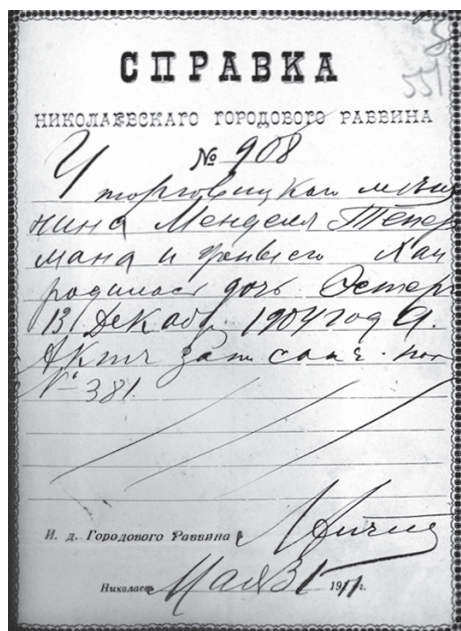 551
СПРАВКА
НИКОЛАЕВСКАГО ГОРОДОВОГО РАВВИНА
№ 908
У торговицкаго мѣща
нина Менделя Тепер
мана и Хаи
родилась дочь Естер
13 Декабр. 1904 год а.
Актъ запис
№ 381.
И. д. Городового Раввина
Николаев Мая 31 1911 г.